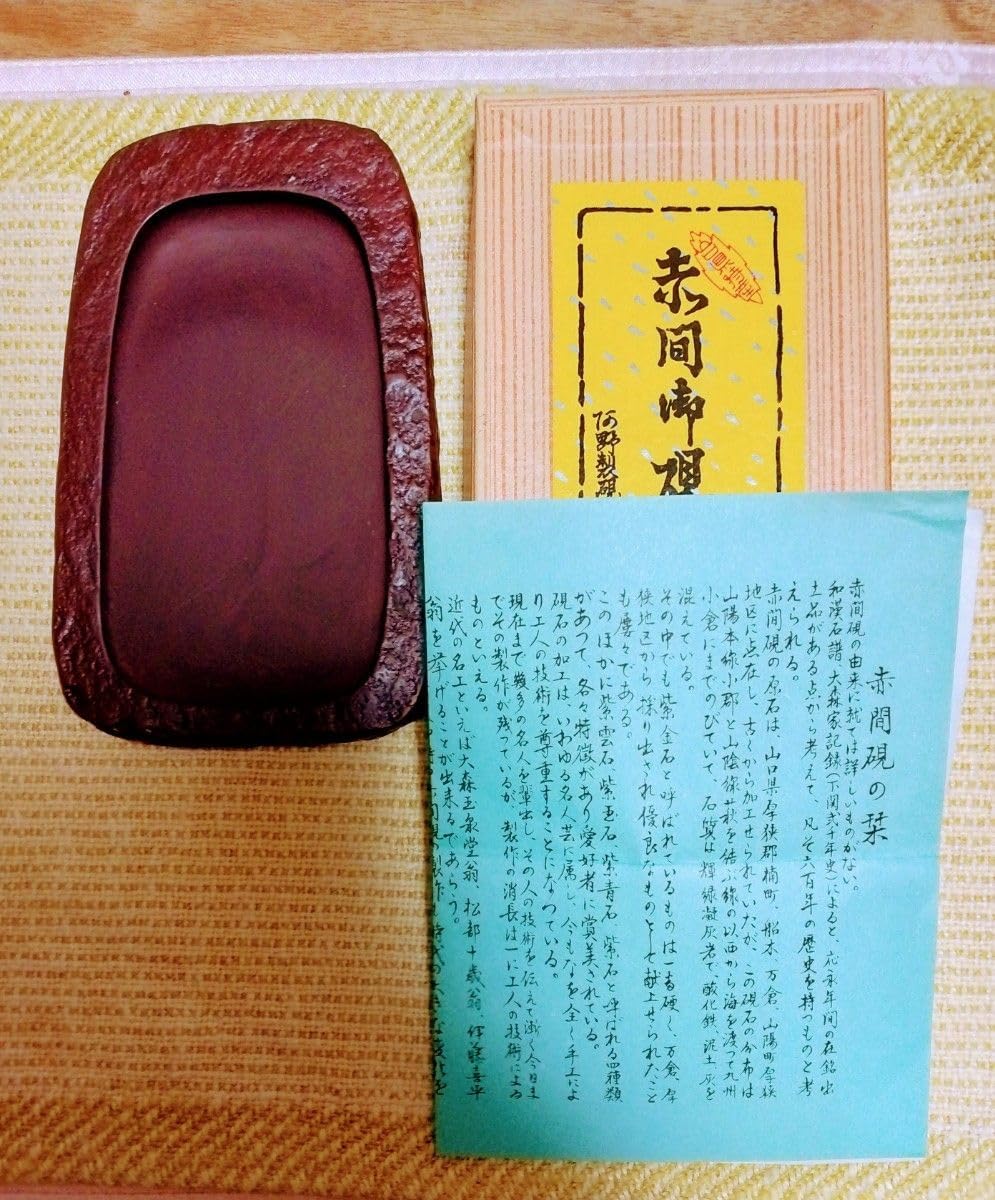 赤間御硯
阿野製硯
赤間硯の栞
赤間硯の由来に就ては詳しいものがない。
和漢石譜、大森家記録(下関弐千年史)によると、応永年間の在銘出
土品がある点から考えて、凡そ六百年の歴史を持つものと考
えられる。
赤間硯の原石は、山口県厚狭郡楠町、船木、万倉、山陽町厚狭
地区に点在し、古くから加工せられていたが、この硯石の分布は
山陽本線小郡と山陰線萩を結ぶ線の以西から海を渡つて九州
小倉にまでのびていて、石質は輝緑凝灰岩で、酸化鉄、泥土、灰を
混えている。
その中でも紫金石と呼ばれているものは一番硬く、万倉、厚
狭地区から採り出され優良なものとして献上せられたこと
も屡々である。
このほかに紫雲石 紫玉石 紫青石 紫石と呼ばれる四種類
があつて、各々特徴があり愛好者に賞美されている。
硯石の加工は、いわゆる名人芸に属し、今もなを全く手工によ
り工人の技術を尊重することになつている。
現在まで幾多の名人を輩出し、その人の技術を伝えて漸く今日ま
でその製作が残つているが、製作の消長は一に工人の技術による
ものといえる。
近代の名工といえば大森玉泉堂翁、松部十歳翁、伊藤喜平
翁を挙げることが出来るであらう。